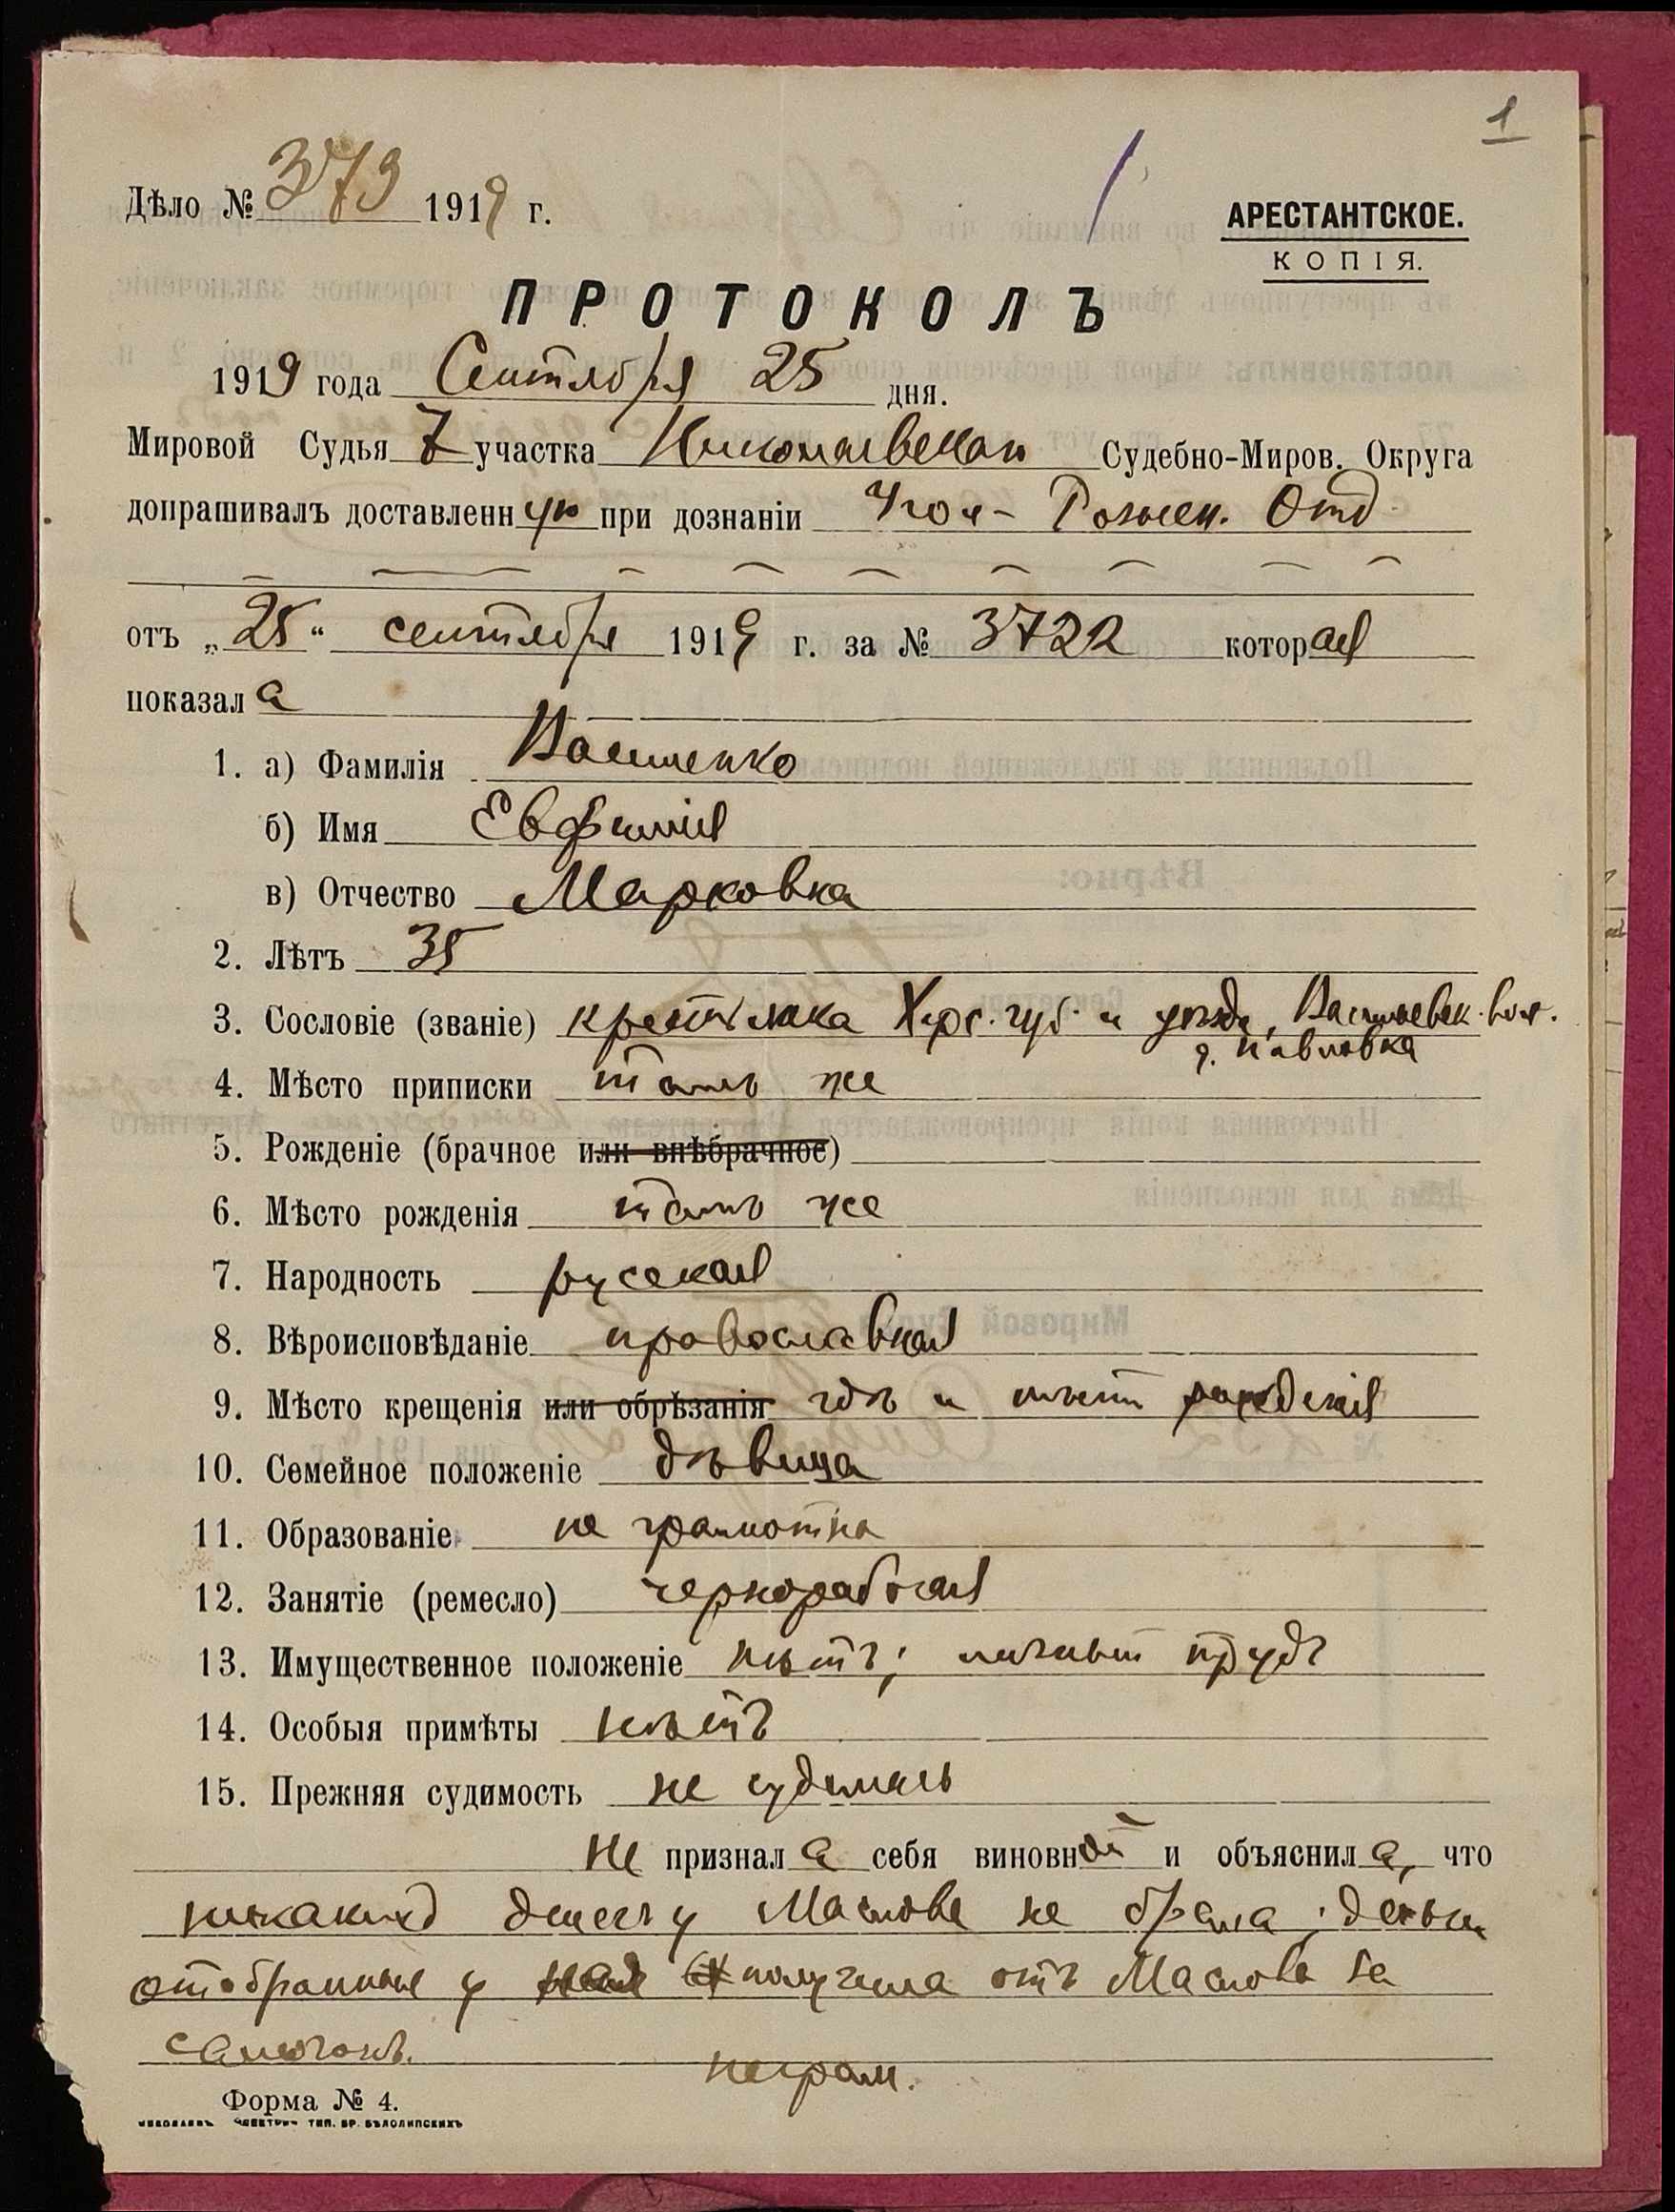 1
Дѣло № 379 1919 г.
АРЕСТАНТСКОЕ.
КОПІЯ.
ПРОТОКОЛЪ
1919 года Сентября 25 дня.
Мировой Судья 7 участка Николаевскаго Судебно-Миров. Округа
допрашивалъ доставленную при дознаніи Угол- Розыск. Отд.
отъ „25“ сентября 1919 г. за № 3722 которая
показала
1. а) Фамилія
б) Имя Евфимія
в) Отчество Марковна
2. Лѣтъ 35
3. Сословіе (званіе) крестьянка Херс. губ. и уѣзда, Васильевск. вол.
д. Павловка
4. Мѣсто приписки тамъ же
5. Рожденіе (брачное или внѣбрачное)
6. Мѣсто рожденія тамъ же
7. Народность русская
8. Вѣроисповѣданіе православная
9. Мѣсто крещенія или обрѣзанія гдѣ и мѣсто рожденія
10. Семейное положеніе дѣвица
11. Образованіе не грамотна
12. Занятіе (ремесло) чернорабочая
13. Имущественное положеніе нѣтъ; личный трудъ
14. Особыя примѣты нѣтъ
15. Прежняя судимость не судилась
Не признала себя виновной и объяснила, что
никакихъ денегъ у Маслова не брала; деньги
отобранныя у получила отъ Маслова за
самогонъ.
неграм.
Форма № 4.
НИКОЛАЕВЪ ЭЛЕКТРИЧ. ТИП. БР. БѢЛОЛИПСКИХЪ